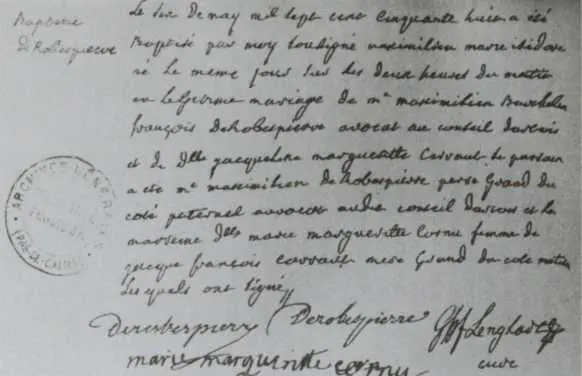 Baptême
de Robespierre
Le six de may mil sept cent cinquante huit a été
Baptisé par moy soussigné maximilien marie isidore
né le même jour sur les deux heures du matin
en legitime mariage de mr maximilien Barthelem
françois de Robespierre avocat au conseil dartois
et de Dlle jacqueline margueritte Carraut. le parrain
a eté mr maximilien de Robespierre pere Grand du
coté paternel avocat audit conseil dartois et la
marreine Dlle marie margueritte Cornu femme de
jacque françois Carraut mere Grand du coté mater
lesquels ont signé
Derobespierre Derobespierre GHF Lenglart
marie margueritte cornu curé
ARCHIVES GÉNÉRALES
(PAS-DE-CALAIS)